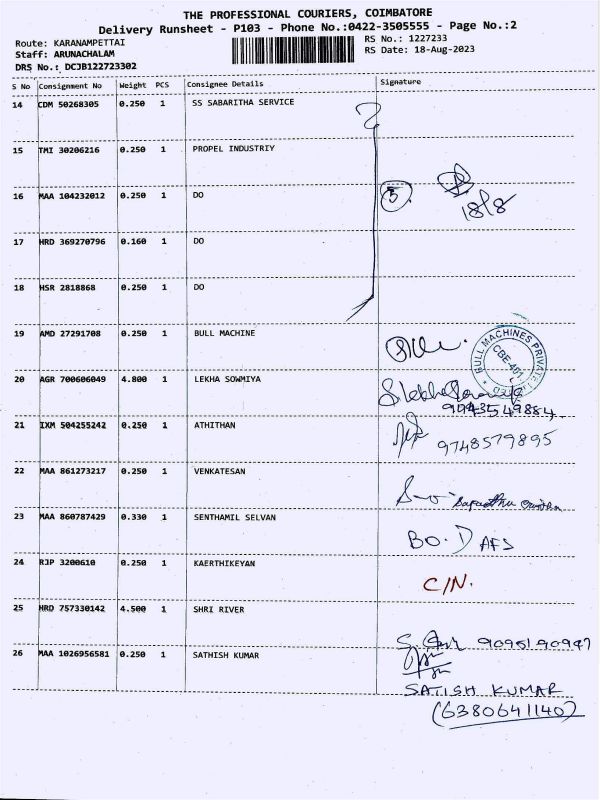 THE PROFESSIONAL COURIERS, COIMBATORE
Delivery Runsheet - P103 - Phone No.:0422-3505555 - Page No.:2
Route: KARANAMPETTAI RS No.: 1227233
Staff: ARUNACHALAM RS Date: 18-Aug-2023
DRS No.: DCJB122723302
S No Consignment No Weight PCS Consignee Details Signature
14 CDM 50268305 0.250 1 SS SABARITHA SERVICE
15 TMI 30206216 0.250 1 PROPEL INDUSTRIY
16 MAA 104232012 0.250 1 DO 5
18/8
17 HRD 369270796 0.160 1 DO
18 HSR 2818868 0.250 1 DO
19 AMD 27291708 0.250 1 BULL MACHINE
BULL MACHINES PRIVATE
CBE-401
20 AGR 700606049 4.800 1 LEKHA SOWMIYA
9043549884
21 IXM 504255242 0.250 1 ATHITHAN
9748579895
22 MAA 861273217 0.250 1 VENKATESAN
23 MAA 860787429 0.330 1 SENTHAMIL SELVAN
BO.D AFS
24 RJP 3200610 0.250 1 KAERTHIKEYAN
C/N.
25 HRD 757330142 4.500 1 SHRI RIVER
9095190947
26 MAA 1026956581 0.250 1 SATHISH KUMAR
SATISH KUMAR
(6380641140)